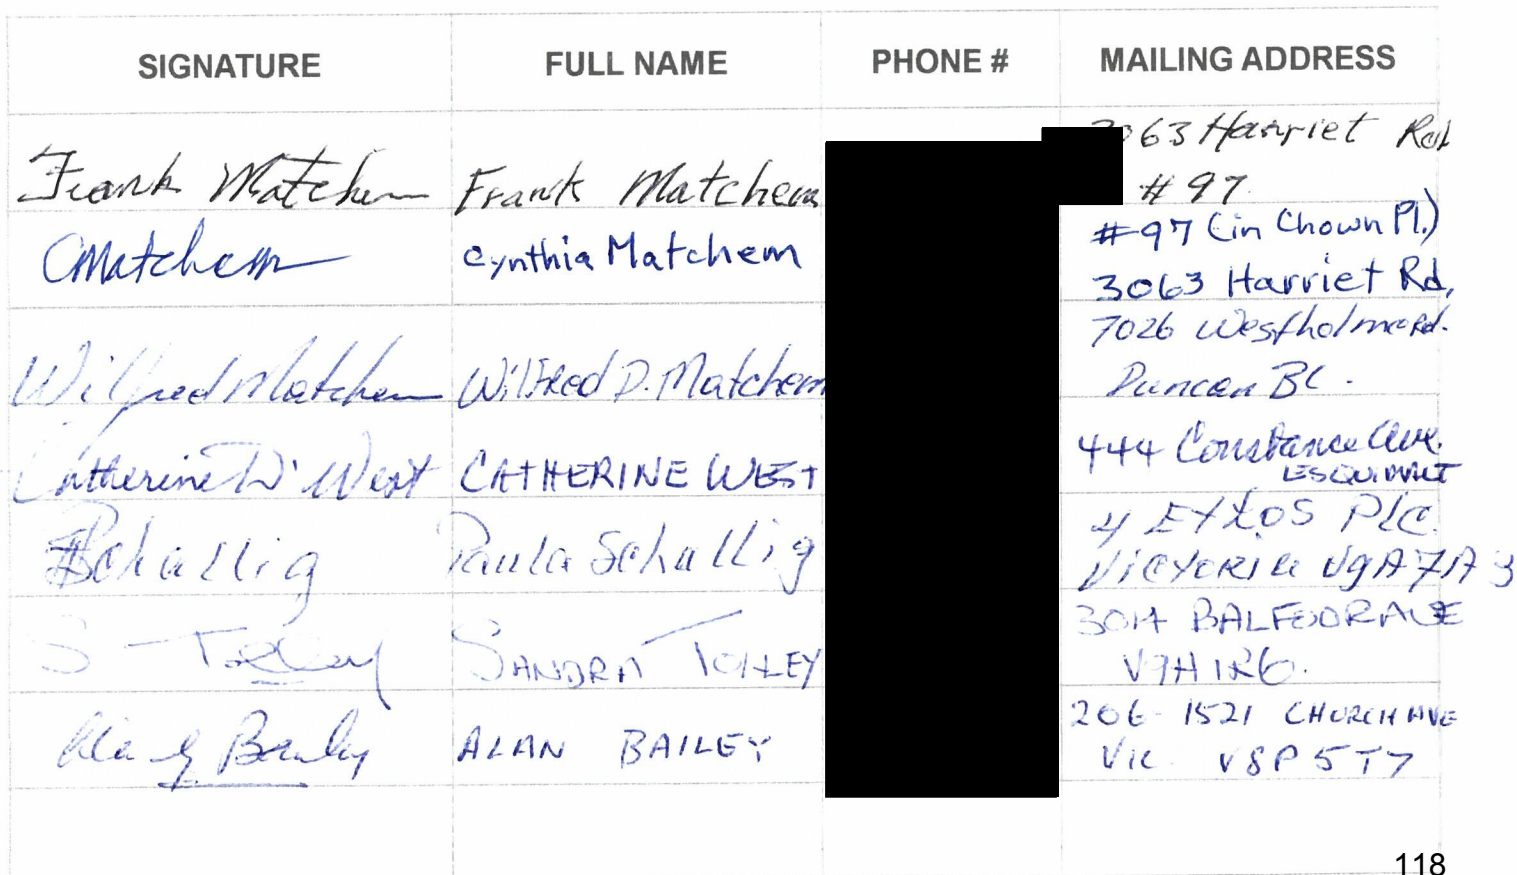 SIGNATURE FULL NAME PHONE # MAILING ADDRESS
Frank Matchem Frank Matchem 3063 Harriet Rd
#97
CMatchem Cynthia Matchem #97 (in Chown Pl.)
3063 Harriet Rd,
Wilfred Matchem Wilfred D. Matchem 7026 Westholme Rd.
Duncan BC.
Catherine D. West CATHERINE WEST 444 Constance Ave.
ESQUIMALT
PSchallig Paula Schallig 4 PLC.
VICTORIA V9A 7A3
S SANDRA 3014 BALFOUR AVE
V9A 1R6.
Bailey ALAN BAILEY 206-1521 CHURCH AVE
VIC. V8P 5T7
118